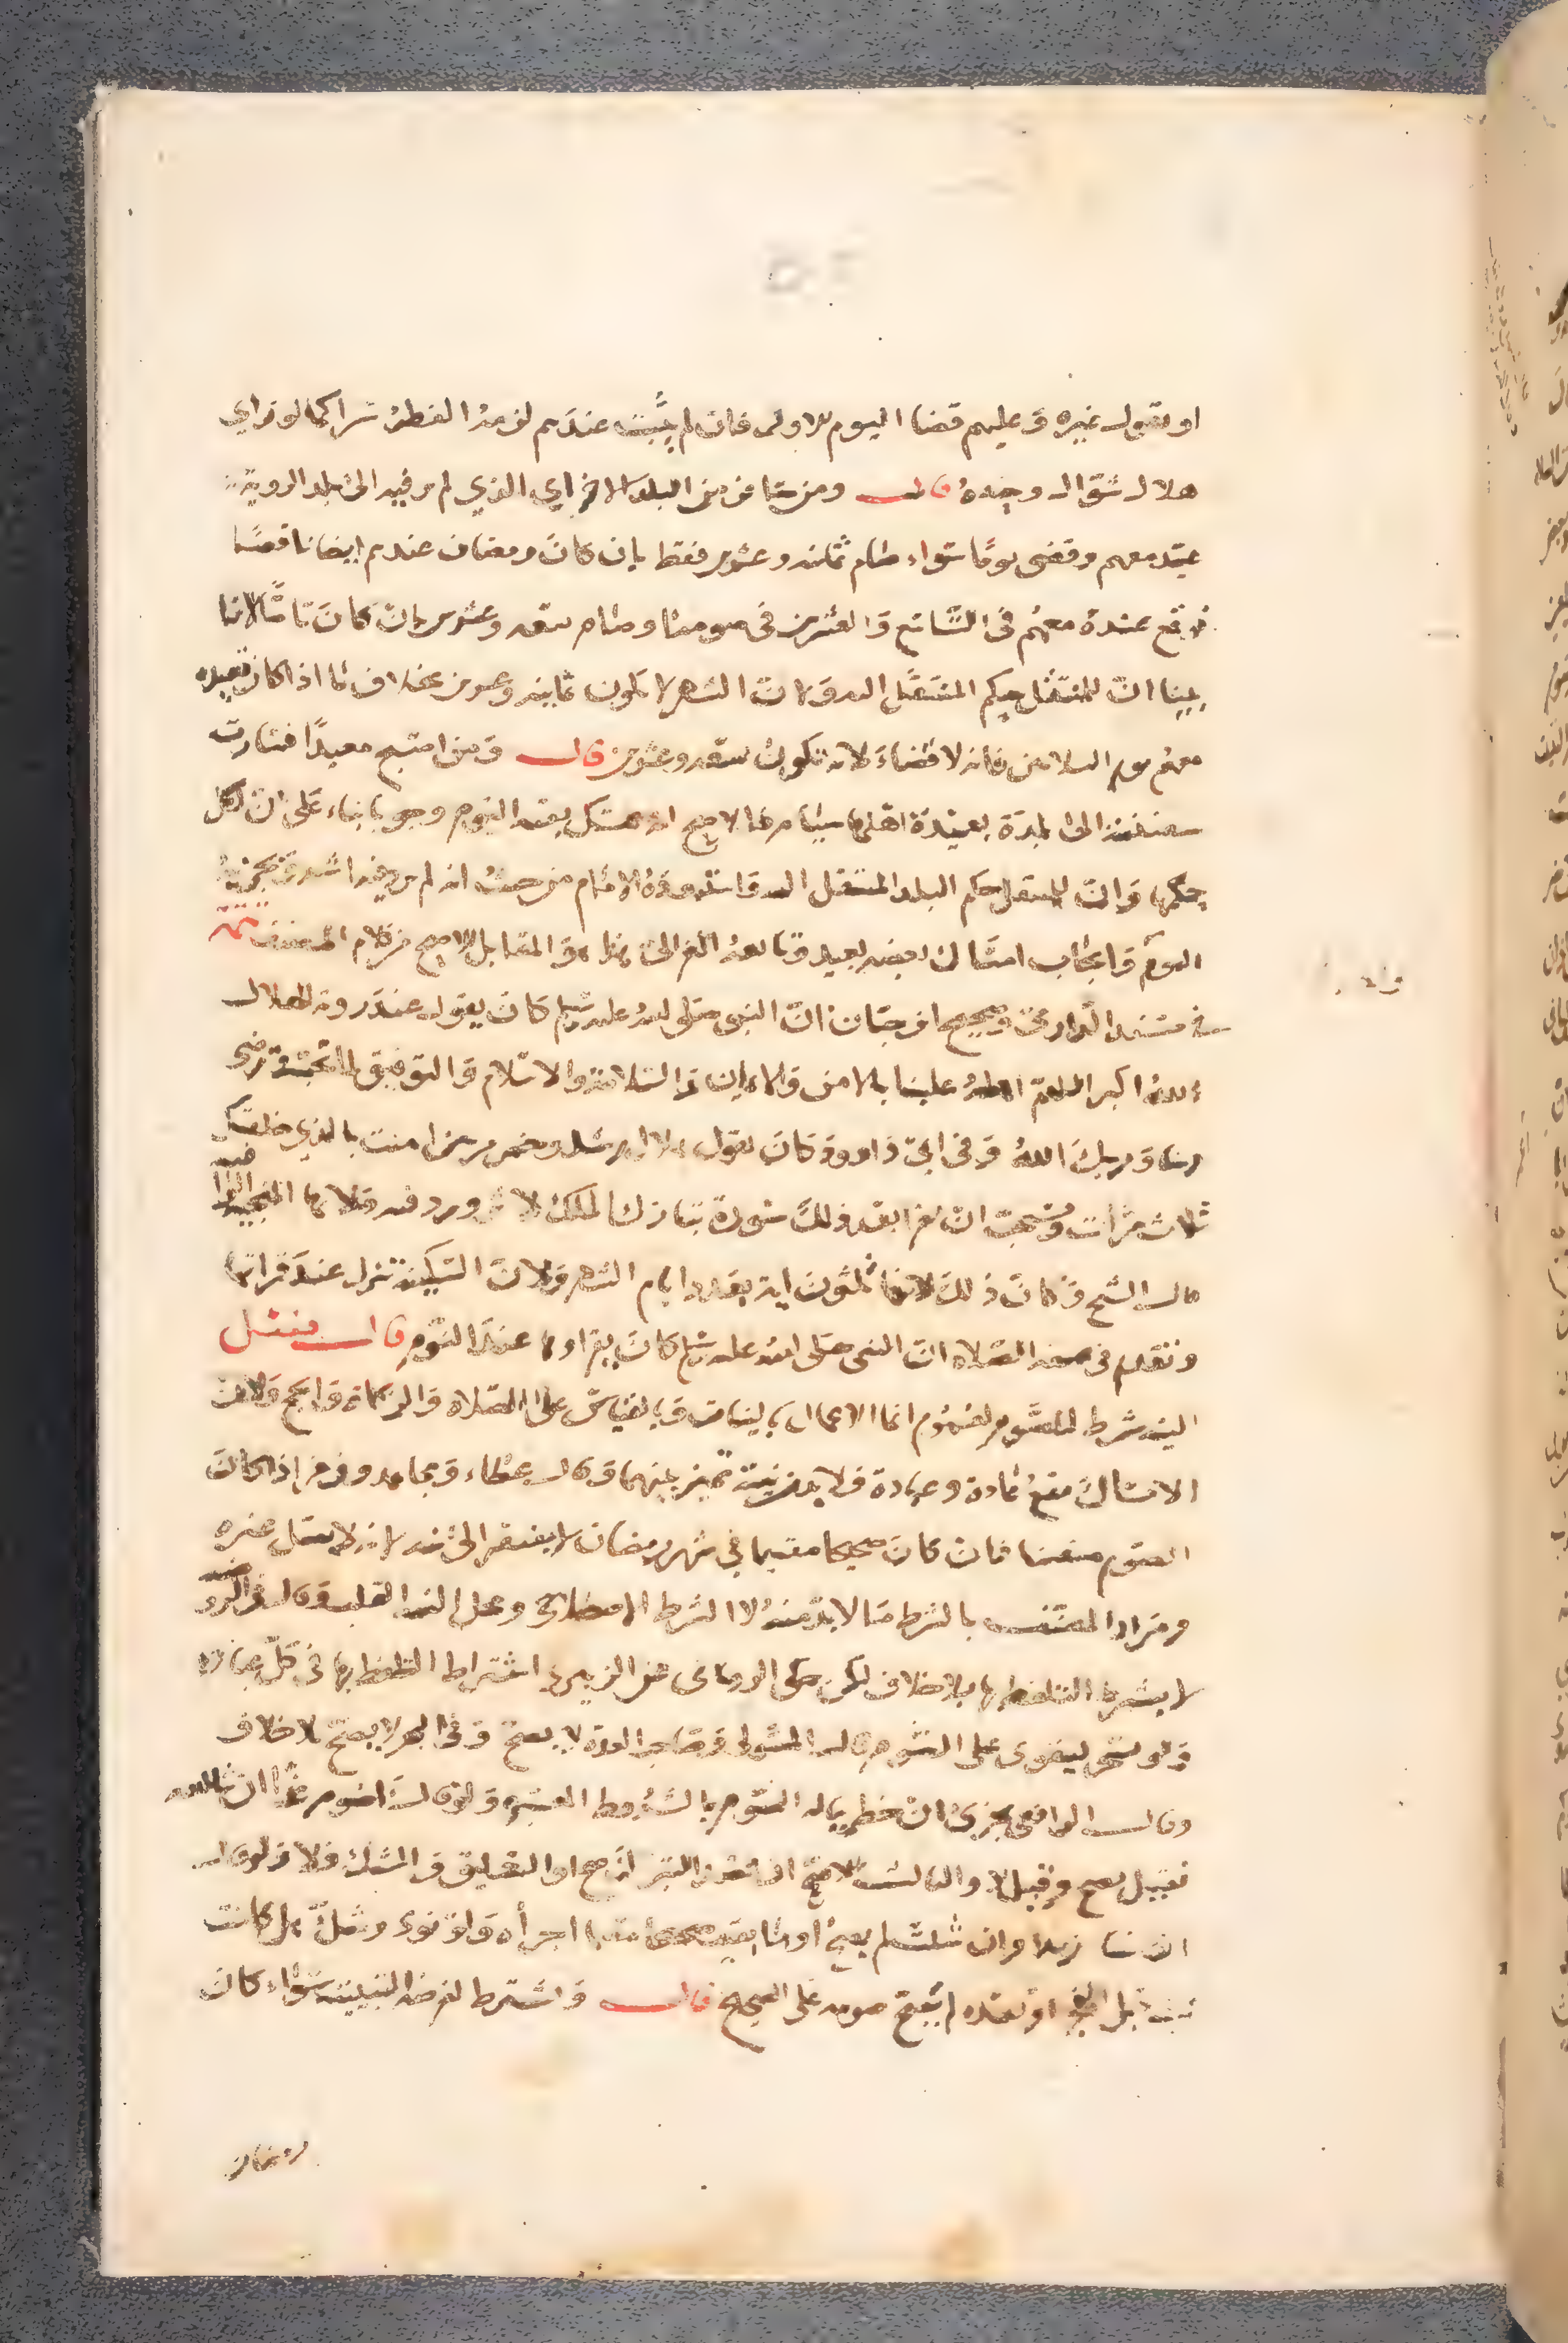 او بقول غيره وعليهم قضا اليوم الاول فان لم يثبت عندهم لزمه الفطر سرا كما لو راي
هلال شوال وحده قال ومن سافر من البلد الاخر اي الذي لم ير فيه الى بلد الروية
عيد معهم وقضى يوما سواء صام ثمانيه وعشرين فقط بان كان رمضان عندهم ايضا ناقصا
فوقع عنده معهم في التاسع والعشرين في صومه او صام تسعه وعشرين بان كان تاما لانا
بينا ان للمنتقل حكم المنتقل اليه ولان الشهر لا يكون ثمانيه وعشرين بخلاف ما اذا كان تعييده
معهم يوم الثلاثين فانه لا قضاء لانه يكون تسعه وعشرين قال ومن اصبح معيدا فسارت
سفينته الى بلدة بعيدة اهلها صيام فالاصح انه يمسك بقيه اليوم وجوبا بناء على ان لكل
حكمها وان للمنتقل حكم البلد المنتقل اليه واستبعده الامام من حيث انه لم يرد فيه اثر وتجزئة
اليوم وايجاب امساك بعضه بعيد وتابعه الغزالي وهذا هو المقابل للاصح من كلام المصنف تتمة
في مسند الدارمي وصحيح ابن حبان ان النبي صلى الله عليه وسلم كان يقول عند روية الهلال
الله اكبر اللهم اهله علينا بالامن والايمان والسلامة والاسلام والتوفيق لما تحب وترضى
ربنا وربك الله وفي ابي داوود كان يقول هلال رشد وخير مرتين امنت بالذي خلقك
ثلاث مرات ويستحب ان يقرا بعد ذلك سورة تبارك الملك لاثر ورد فيه ولانها المنجية الواقية
قال الشيخ وكان ذلك لانها ثلثون اية بعدد ايام الشهر ولان السكينة تنزل عند قراتها
وتقدم في صفه الصلاه ان النبي صلى الله عليه وسلم كان يقراوها عند النوم قال فصل
النيه شرط للصوم لعموم انما الاعمال بالنيات وبالقياس على الصلاه والزكاة والحج ولان
الامساك يقع عادة وعبادة فلا بد من نية تميز بينهما وقال عطاء ومجاهد وزفر اذا كان
الصوم متعينا فان كان صحيحا مقيما في شهر رمضان لا يفتقر الى نيه لانه لا يقبل غيره
ومراد المصنف بالشرط ما لا بد منه لا الشرط الاصطلاحي ومحل النيه القلب وقال في الروضه
لا يشترط التلفظ بها بلا خلاف لكن حكى الروياني عن الزبيري اشتراط التلفظ بها في كل عباده
ولو تسحر ليقوى على الصوم قال المتولي وصاحب العدة لا يصح وفي البحر لا يصح بلا خلاف
وقال الرافعي يجزئ ان خطر بباله الصوم بالشروط المعتبره ولو قال اصوم غدا ان شاالله
فقيل يصح وقيل لا والثالث الاصح ان قصد التبرك صح او التعليق والشك فلا ولو قال
ان شا زيد وان شككت لم يصح او ما بقيت صحيحا مقيما اجزأه ولو نوى وشك هل كانت
نيته قبل الفجر او بعده لم يصح صومه على الصحيح قال ويشترط لفرضه التبييت سواء كان
رمضان